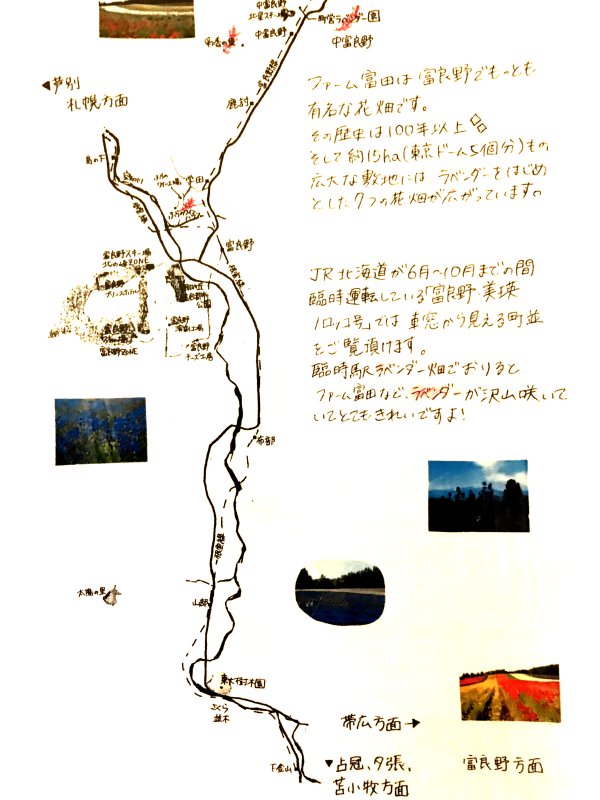 中富良野
北星スキー場
町営ラベンダー園
中富良野
中富良野
彩香の里
富良野線
鹿討
◀芦別
札幌方面
島の下
学田
富良野
根室線
富良野スキー場
北の峰ZONE
富良野
プリンスホテル
富良野
チーズ工場
富良野ZONE
布部
根室線
太陽の里
山部
東大樹木園
さくら
並木
下金山
ファーム富田は富良野でもっとも
有名な花畑です。
その歴史は100年以上
そして約15ha(東京ドーム5個分)もの
広大な敷地にはラベンダーをはじめ
とした7つの花畑が広がっています。
JR北海道が6月〜10月までの間
臨時運転している「富良野・美瑛
ノロッコ号」では車窓から見える町並
をご覧頂けます。
臨時駅ラベンダー畑でおりると
ファーム富田など、ラベンダーが沢山咲いて
いてとてもきれいですよ!
帯広方面→
▼占冠、夕張、
苫小牧方面
富良野方面